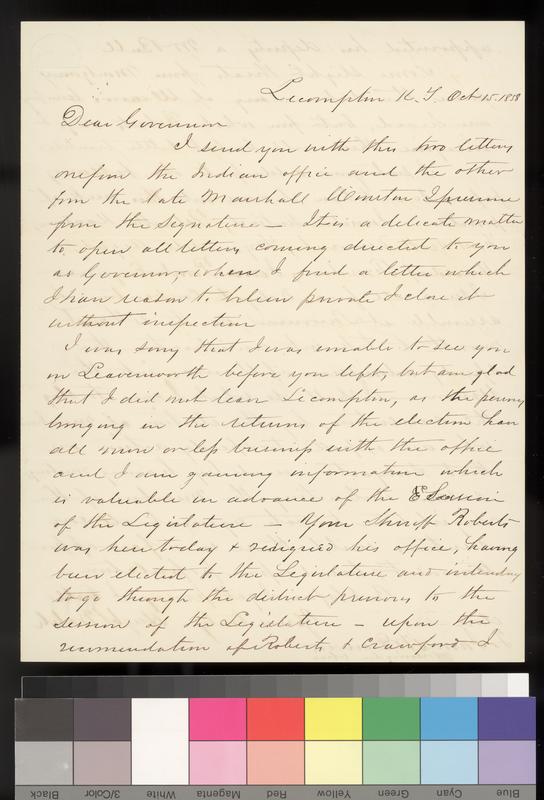 Lecompton K. T. Oct 15. 1858
Dear Governor
I send you with this two letters
one from the Indian office and the other
from the late Marshall Winston I presume
from the signature — It is a delicate matter
to open all letters coming directed to you
as Governor, when I find a letter which
I have reason to believe private I close it
without inspection
I was sorry that I was unable to see you
in Leavenworth before you left, but am glad
that I did not leave Lecompton, as the persons
bringing in the returns of the election have
all more or less business with the office
and I am gaining information which
is valuable in advance of the Session
of the Legislature — Your Sheriff Roberts
was here today & resigned his office, having
been elected to the Legislature and intending
to go through the district previous to the
session of the Legislature — upon the
recomendation of Roberts & Crawford I
Black
3/Color
White
Magenta
Red
Yellow
Green
Cyan
Blue